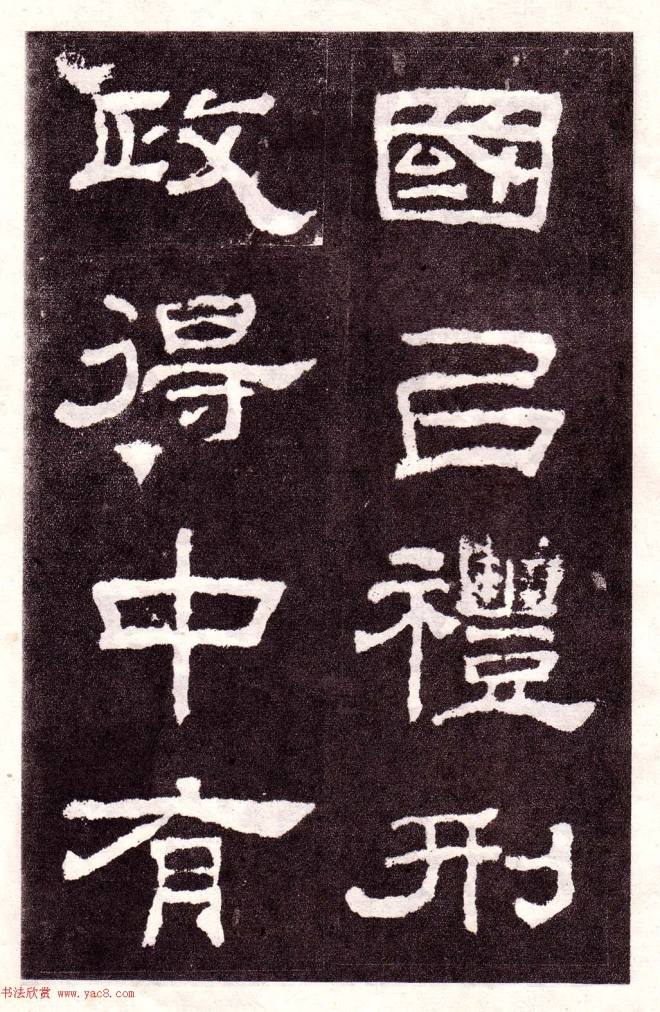 國㠯禮刑
政得中有
书法欣赏 www.yac8.com